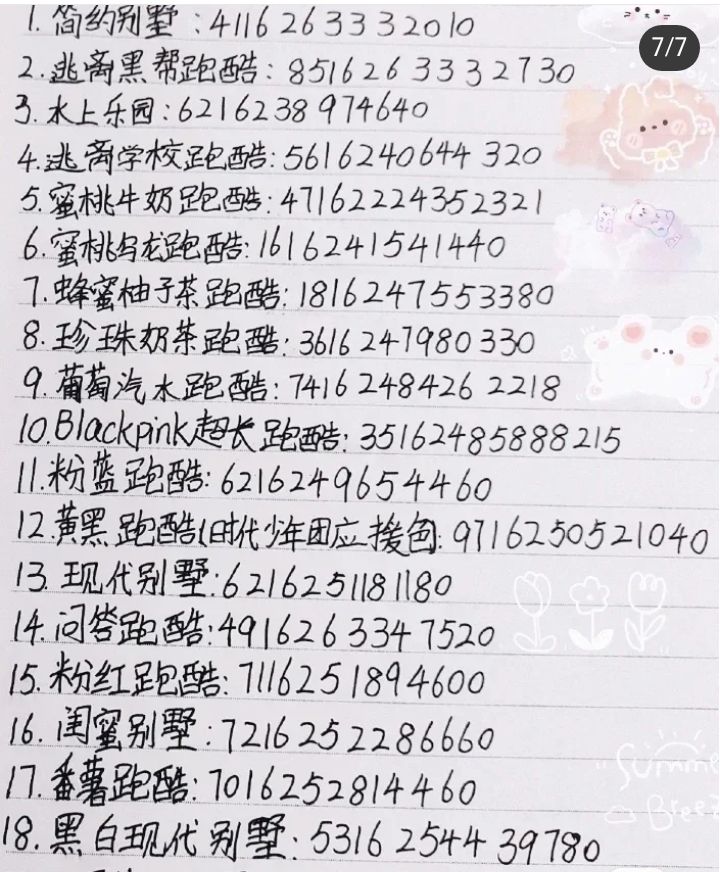 7/7
1. 简约别墅:4116263332010
2. 逃离黑帮跑酷:8516263332730
3. 水上乐园:6216238974640
4. 逃离学校跑酷:5616240644320
5. 蜜桃牛奶跑酷:47162224352321
6. 蜜桃乌龙跑酷:1616241541440
7. 蜂蜜柚子茶跑酷:1816247553380
8. 珍珠奶茶跑酷:3616247980330
9. 葡萄汽水跑酷:7416248426 2218
10. Blackpink超长跑酷:35162485888215
11. 粉蓝跑酷:6216249654460
12. 黄黑跑酷(时代少年团应援色):9716250521040
13. 现代别墅:6216251181180
14. 问答跑酷:4916263347520
15. 粉红跑酷:7116251894600
16. 闺蜜别墅:7216252286660
17. 番薯跑酷:7016252814460
18. 黑白现代别墅:5316254439780
Summe
Breez